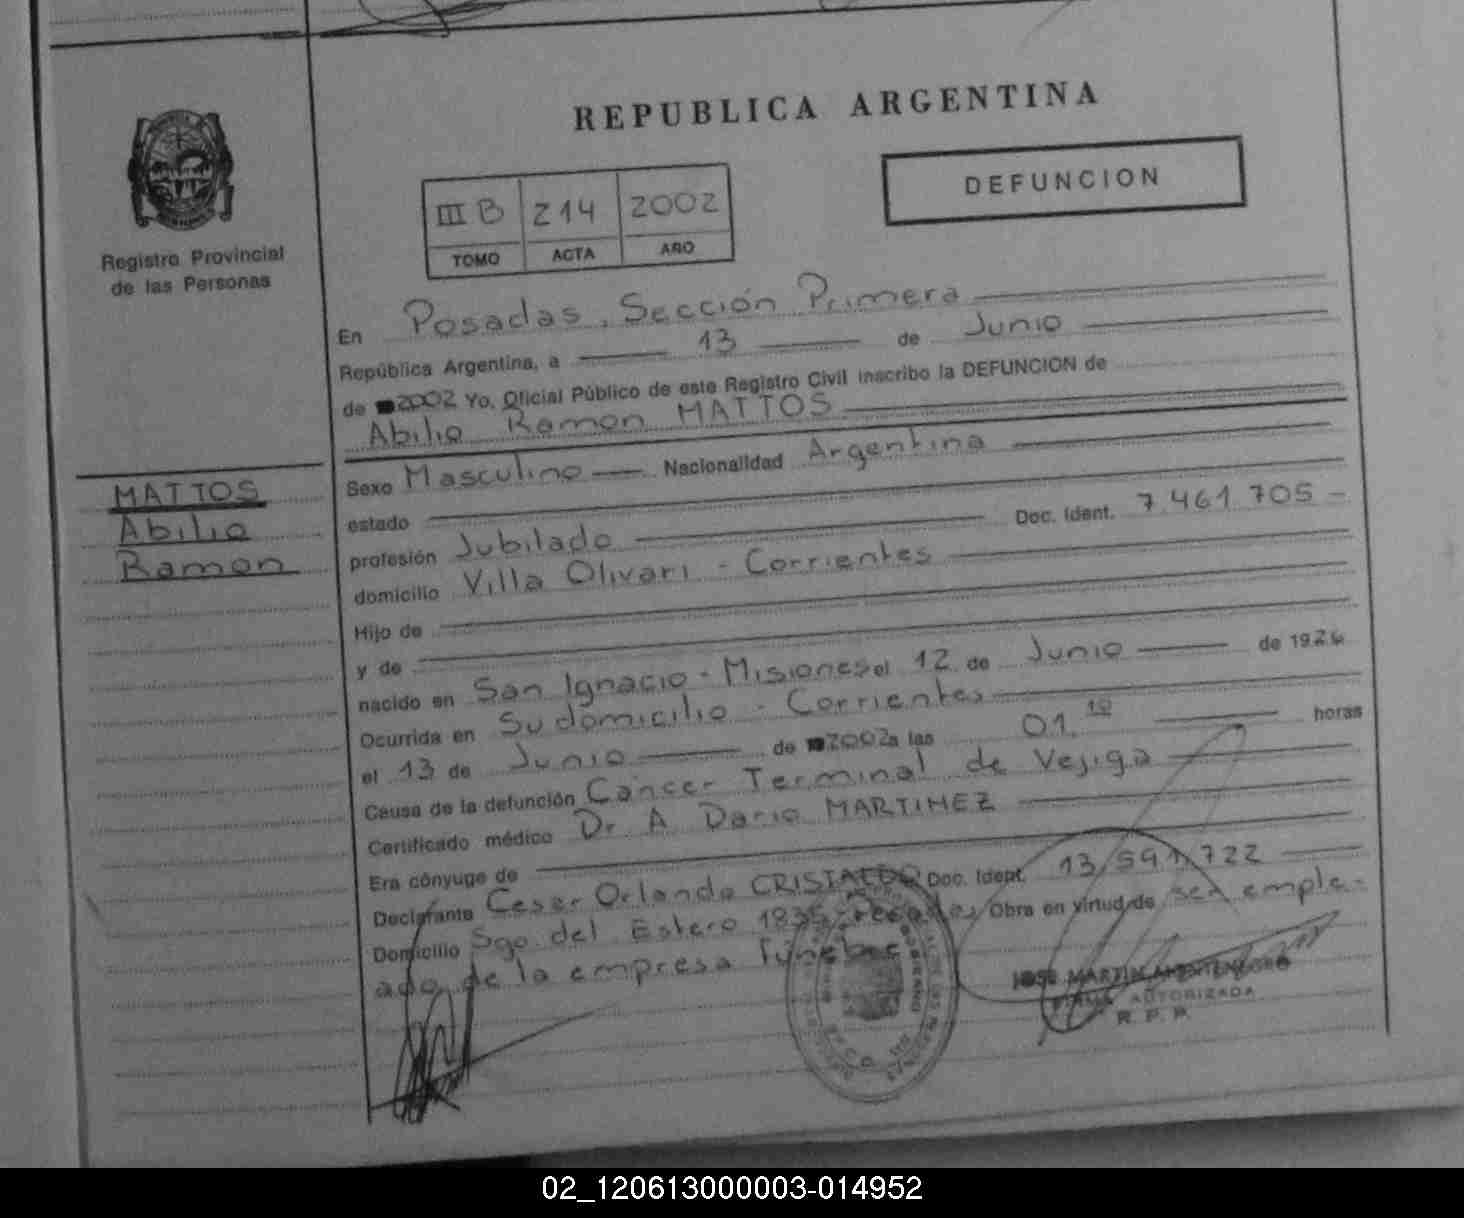 REPUBLICA ARGENTINA
DEFUNCION
III B 214 2002
TOMO ACTA AÑO
Registro Provincial
de las Personas
MATTOS
Abilio
Ramon
En Posadas, Sección Primera
República Argentina, a 13 de Junio
de 2002 Yo, Oficial Público de este Registro Civil inscribo la DEFUNCION de
Abilio Ramon MATTOS
Sexo Masculino Nacionalidad Argentina
estado
profesión Jubilado Doc. Ident. 7.461.705 -
domicilio Villa Olivari - Corrientes
Hijo de
y de
nacido en San Ignacio - Misiones el 12 de Junio de 1926
Ocurrida en Su domicilio - Corrientes
el 13 de Junio de 2002 a las 01.10 horas
Causa de la defunción Cáncer Terminal de Vejiga
Certificado médico Dr A Dario MARTINEZ
Era cónyuge de
Declarante Cesar Orlando CRISTALDO Doc. Ident. 13,591,722
Domicilio Sgo. del Estero 1835 Posadas Obra en virtud de ser emple-
ado de la empresa Fúnebre
JOSE MARTIN MONTENEGRO
FIRMA AUTORIZADA
R. P. P.
02_120613000003-014952